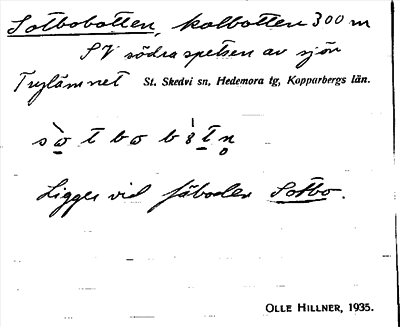 Sotbobotten, kolbotten 300 m
SV södra spetsen av sjön
Trytjärnet St. Skedvi sn, Hedemora tg, Kopparbergs län.
Ligger vid fäboden Sotbo.
OLLE HILLNER, 1935.